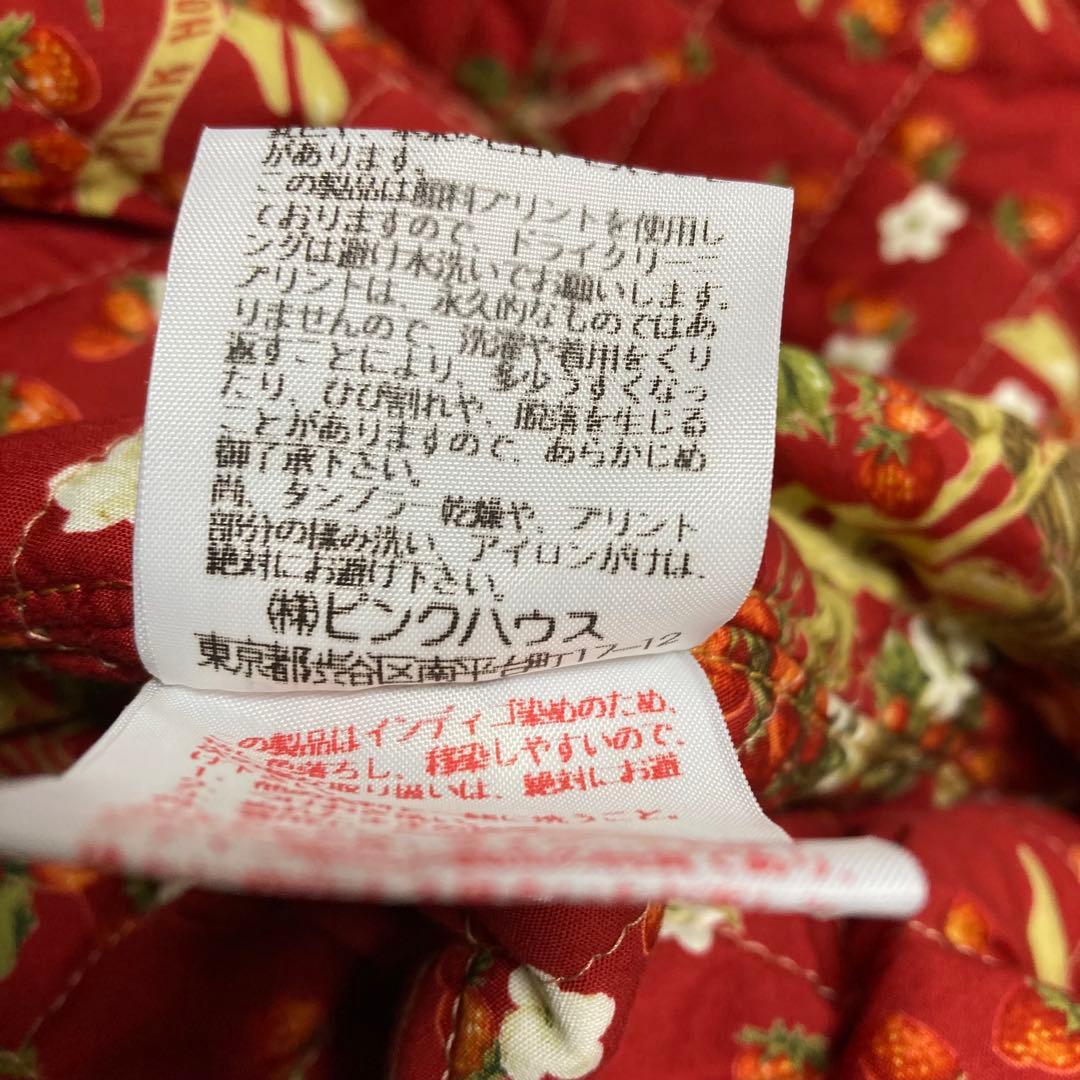 があります。
この製品は顔料プリントを使用し
ておりますので、ドライクリーニ
ングは避け水洗いでお願いします。
プリントは、永久的なものではあ
りませんので、洗濯や着用をくり
返すことにより、多少うすくなっ
たり、ひび割れや、脱落を生じる
ことがありますので、あらかじめ
御了承下さい。
尚、タンブラー乾燥や、プリント
部分の揉み洗い、アイロンがけは、
絶対にお避け下さい。
㈱ピンクハウス
東京都渋谷区南平台町17-12
この製品はインディゴ染めのため、
色落ちし、移染しやすいので、
取り扱いは、絶対にお避
PINK HO